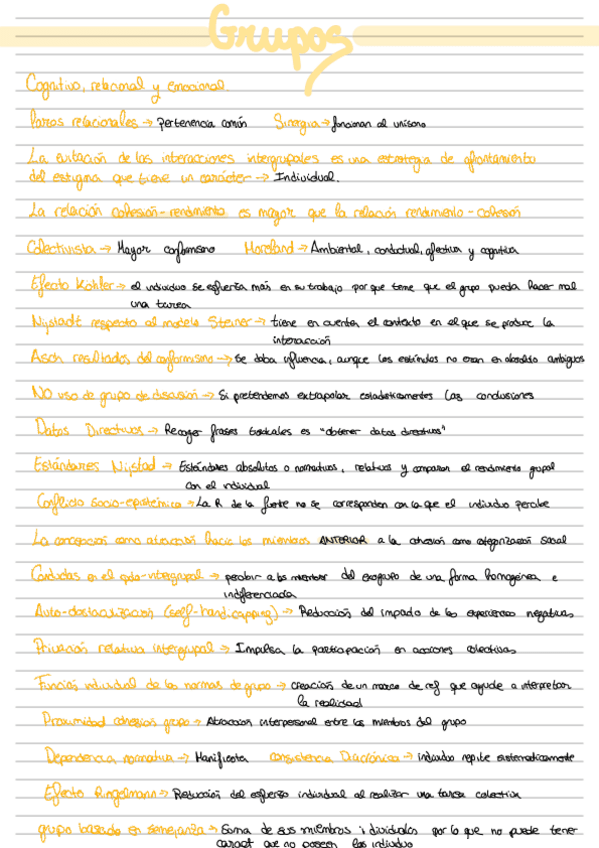 Grupos
Cognitivo, relacional y emocional.
Lazos relacionales → pertenencia común Sinergia → funcionan al unísono
La evitación de las interacciones intergrupales es una estrategia de afrontamiento
del estigma que tiene un carácter → Individual.
La relación cohesión-rendimiento es mayor que la relación rendimiento-cohesión
Colectivista → Mayor conformismo Moreland → Ambiental, conductual, afectiva y cognitiva
Efecto Köhler → el individuo se esfuerza más en su trabajo porque teme que el grupo pueda hacer mal
una tarea
Nijstadt respecto al modelo Steiner → tiene en cuenta el contexto en el que se produce la
interacción
Asch resultados del conformismo → Se daba influencia, aunque los estímulos no eran en absoluto ambiguos
NO uso de grupo de discusión → Si pretendemos extrapolar estadísticamente las conclusiones
Datos Directivos → Recoger frases textuales es "obtener datos directivos"
Estándares Nijstad → Estándares absolutos o normativos, relativos y comparan el rendimiento grupal
con el individual
Conflicto socio-epistémico → La R de la fuente no se corresponden con la que el individuo percibe
La concepción como atracción hacia los miembros ANTERIOR a la cohesión como categorización social
Conductas en el polo-intergrupal → percibir a los miembros del exogrupo de una forma homogénea e
indiferenciada
Auto-obstaculización (self-handicapping) → Reducción del impacto de las experiencias negativas
Privación relativa intergrupal → Impulsa la participación en acciones colectivas
Función individual de las normas de grupo → creación de un marco de ref que ayude a interpretar
la realidad
Proximidad cohesión grupo → Atracción interpersonal entre los miembros del grupo
Dependencia normativa → Manifiesta consistencia Diacrónica → individuo repite sistemáticamente
Efecto Ringelmann → Reducción del esfuerzo individual al realizar una tarea colectiva
grupo basado en semejanza → Suma de sus miembros individuales por lo que no puede tener
caract que no poseen los individuo